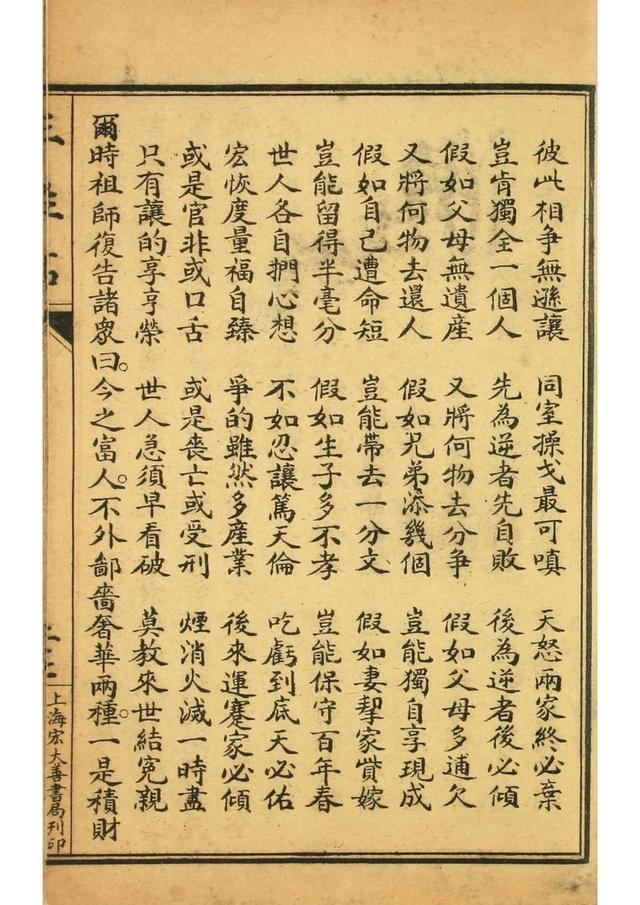 彼此相爭無遜讓　同室操戈最可嗔　天怒兩家終必棄
豈肯獨全一個人　先為逆者先自敗　後為逆者後必傾
假如父母無遺産　又將何物去分爭　假如父母多逋欠
又將何物去還人　假如兄弟添幾個　豈能獨自享現成
假如自己遭命短　豈能帶去一分文　假如妻拏家貲嫁
豈能留得半毫分　假如生子多不孝　豈能保守百年春
世人各自捫心想　不如忍讓篤天倫　吃虧到底天必佑
宏恢度量福自臻　爭的雖然多産業　後來運蹇家必傾
或是官非或口舌　或是喪亡或受刑　煙消火滅一時盡
只有讓的享亨榮　世人急須早看破　莫教來世結寃親
爾時祖師復告諸眾曰。今之富人。不外鄙嗇奢華兩種。一是積財
上海宏大善書局刊印